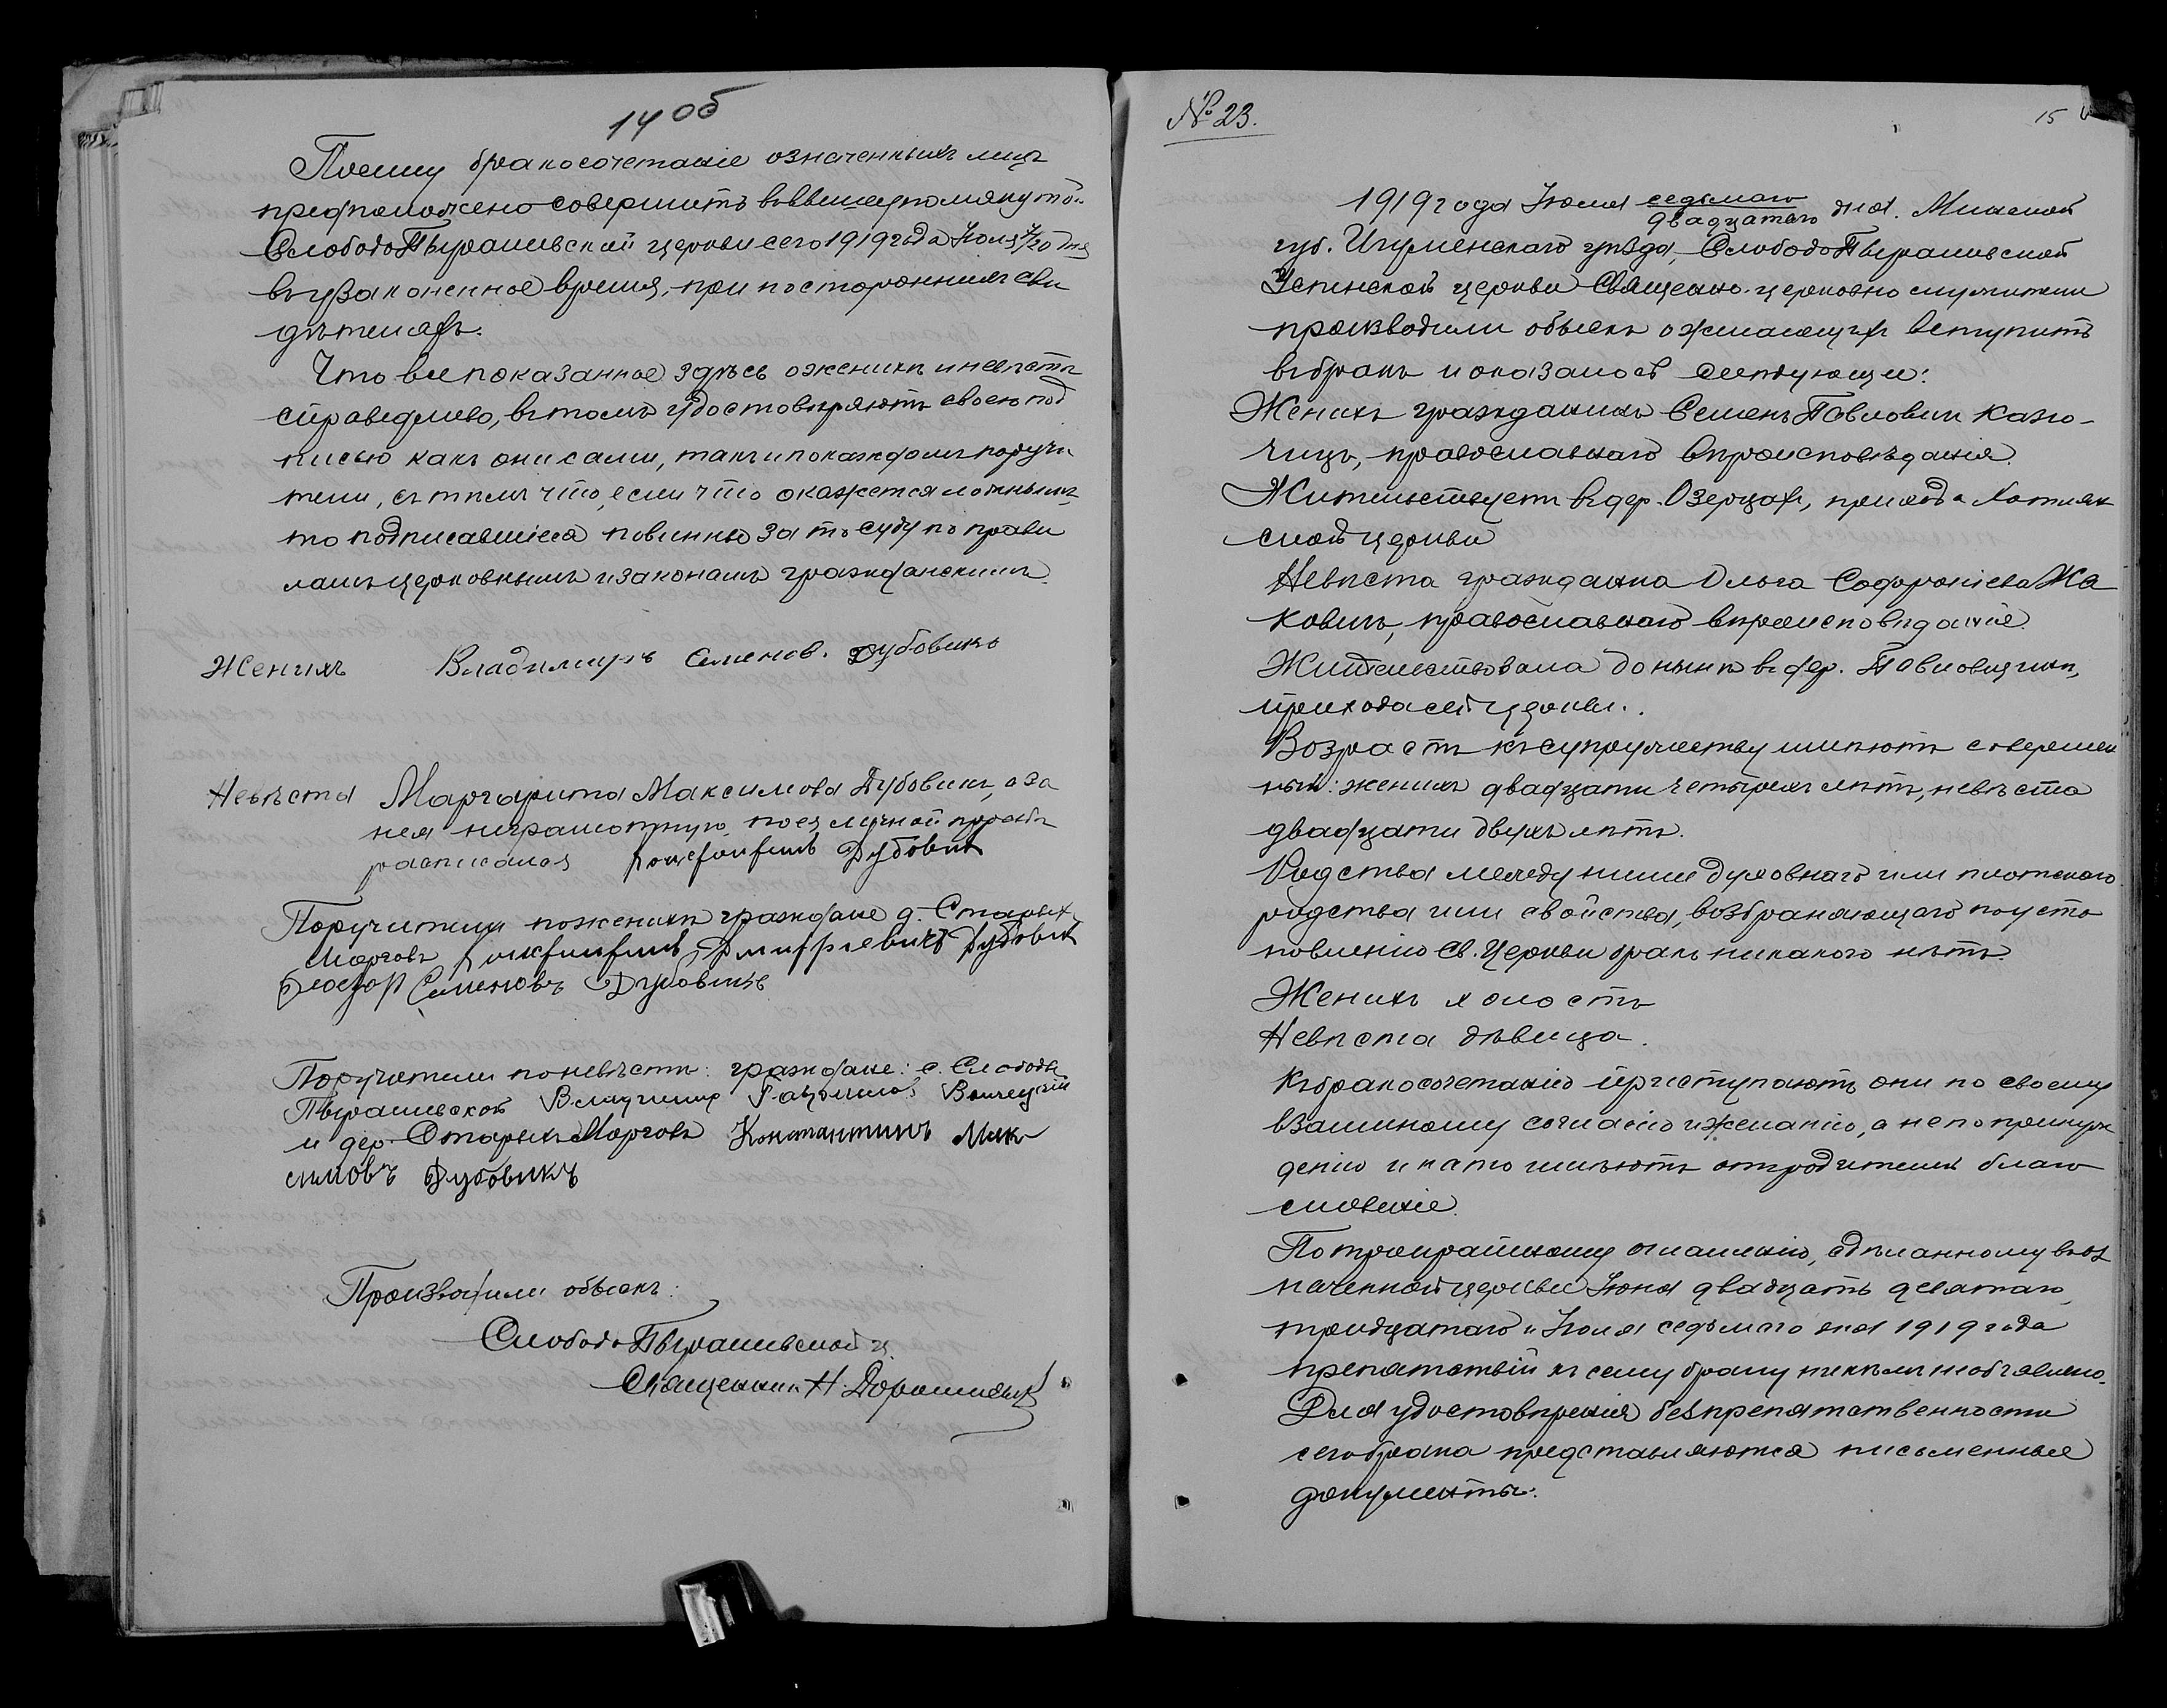 14 об
Поему бракосочетаніе означенныхъ лицъ
предположено совершить въ вышеупомянутой
Слободо Пырашевской церкви сего 1919 года Іюля 7/20 дня
въ узаконенное время, при постороннихъ сви
дѣтеляхъ.
Что все показанное здѣсь о женихѣ и невѣстѣ
справедливо, въ томъ удостовѣряютъ своею под
писью какъ они сами, такъ и по каждомъ поручи
тели, съ тѣмъ что, если что окажется ложнымъ
то подписавшіеся повинны за то суду по прави
ламъ церковнымъ и законамъ гражданскимъ.
Женихъ Владимиръ Семенов. Дубовикъ
Невѣста Маргарита Максимова Дубовикъ, а за
нея неграмотную, по ея личной просьбѣ
расписался Дубовик
Поручители по женихѣ граждане д. Старыхъ
Морговъ Дмитріевичъ Дубовик
Семеновъ Дубовикъ
Поручители по невѣстѣ: граждане: с. Слободы
Пырашевской
и дер. Старыхъ Морговъ Константинъ Мак
симовъ Дубовикъ
Произвадили обыскъ:
Слободо Пырашевской ц.
Священникъ Н.
№ 23.
15
1919 года Іюля седьмаго
двадцатаго дня. Минской
губ. Игуменскаго уѣзда, Слободо Пырашевской
Успенской церкви Священно-церковно служители
производили обыскъ о желающихъ вступить
въ бракъ и оказалось слѣдующее:
Женихъ гражданинъ Семенъ Павловъ Казю-
чицъ, православнаго вѣроисповѣданія.
Жительствуетъ въ дер. Озерцахъ, прихода Хотлян
ской церкви
Невѣста гражданка Ольга Софроніева Жа
ковичъ, православнаго вѣроисповѣданія.
Жительствовала до нынѣ въ дер. Павловщинѣ,
прихода сей церкви.
Возрастъ къ супружеству имѣютъ совершен
ный: женихъ двадцати четырехъ лѣтъ, невѣста
двадцати двухъ лѣтъ.
Родства между ними духовнаго или плотскаго
родства или свойства, возбраняющаго по уста
новленію Св. Церкви бракъ никакого нѣтъ.
Женихъ холостъ
Невѣста дѣвица.
Къ бракосочетанію приступаютъ они по своему
взаимному согласію и желанію, а не по принуж
денію и на то имѣютъ отъ родителей благо
словеніе.
По троекратному оглашенію, сдѣланному въ оз
наченной церкви Іюня двадцать девятаго,
тридцатаго и Іюля седьмаго дня 1919 года
препятствій къ сему браку никѣмъ не объявлено.
Для удостовѣренія безпрепятственности
сего брака представляются письменные
документы: